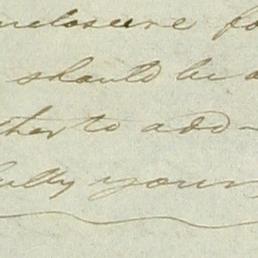 nclosure fo
should be a
ther to add
fully yours